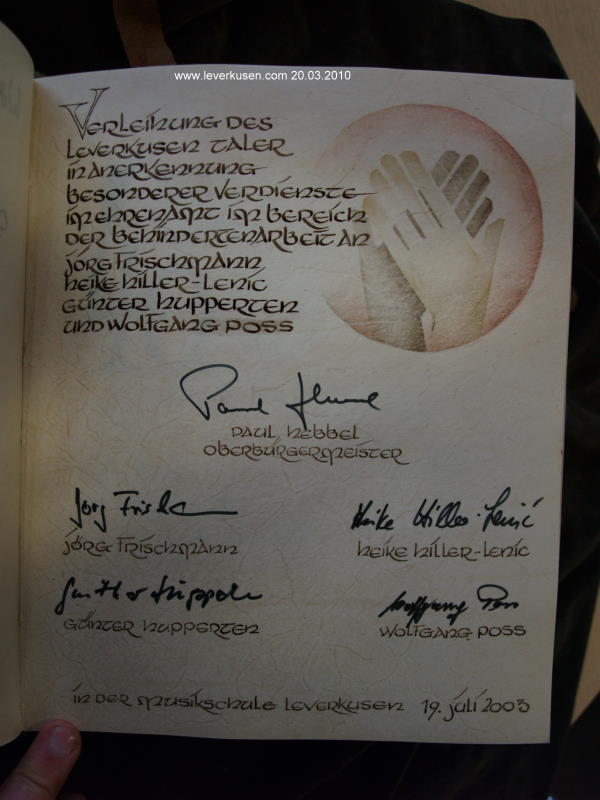 www.leverkusen.com 20.03.2010
Verleihung des
Leverkusen Taler
in Anerkennung
besonderer Verdienste
im Ehrenamt im Bereich
der Behindertenarbeit an
Jörg Frischmann
Heike Hiller-Lenic
Günter Hupperten
und Wolfgang Poss
Paul Hebbel
Oberbürgermeister
Jörg Frisch
Heike Hiller-Lenić
Jörg Frischmann
Heike Hiller-Lenic
Wolfgang Poss
Günter Hupperten
Wolfgang Poss
in der Musikschule Leverkusen 19. Juli 2003